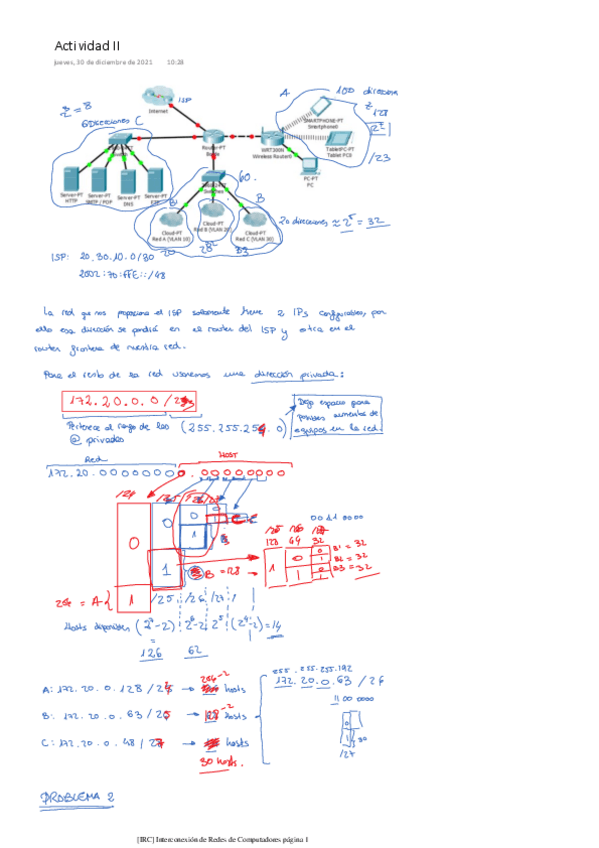 Actividad II
jueves, 30 de diciembre de 2021 10:28
2³ = 8
6 Direcciones C
ISP
Internet
A 100 direcciones
128
/23
SMARTPHONE-PT
Smartphone0
TabletPC-PT
Tablet PC0
WRT300N
Wireless Router0
Router-PT
PC-PT
PC
60.
Server-PT
HTTP
Server-PT
SMTP / POP
Server-PT
DNS
Server-PT
B
Cloud-PT
Red A (VLAN 10)
Cloud-PT
Red B (VLAN 20)
Cloud-PT
Red C (VLAN 30)
20 direcciones ≈ 2⁵ = 32
ISP: 20.30.10.0/30
2002:70:FFE::/48
La red que nos proporciona el ISP solamente tiene 2 IPs configurables, por
ello esa dirección se pondrá en el router del ISP y otra en el
router frontera de nuestra red.
Para el resto de la red usaremos una dirección privada:
172.20.0.0/23
Pertenece al rango de las
@ privadas
(255.255.254.0)
Dejo espacio para
posibles aumentos de
equipos en la red.
Red
HOST
172.20.0000000 0.00000000
/24 /25
0
0
0
1
1
1
B = 128
0011 0000
128 64 32
1
0
1
0
1
0
1
B1 = 32
B2 = 32
B3 = 32
254 = A
/25 /26 /27
Hosts disponibles (2⁷-2) 2⁶-2 2⁵ (2⁴-2) = 14
=
126
62
255.255.255.192
172.20.0.63/26
11 00 0000
0
1
30
/27
A: 172.20.0.128/24 → hosts
B: 172.20.0.63/25 → hosts
C: 172.20.0.48/27 → hosts
30 hosts.
PROBLEMA 2
[IRC] Interconexión de Redes de Computadores página 1